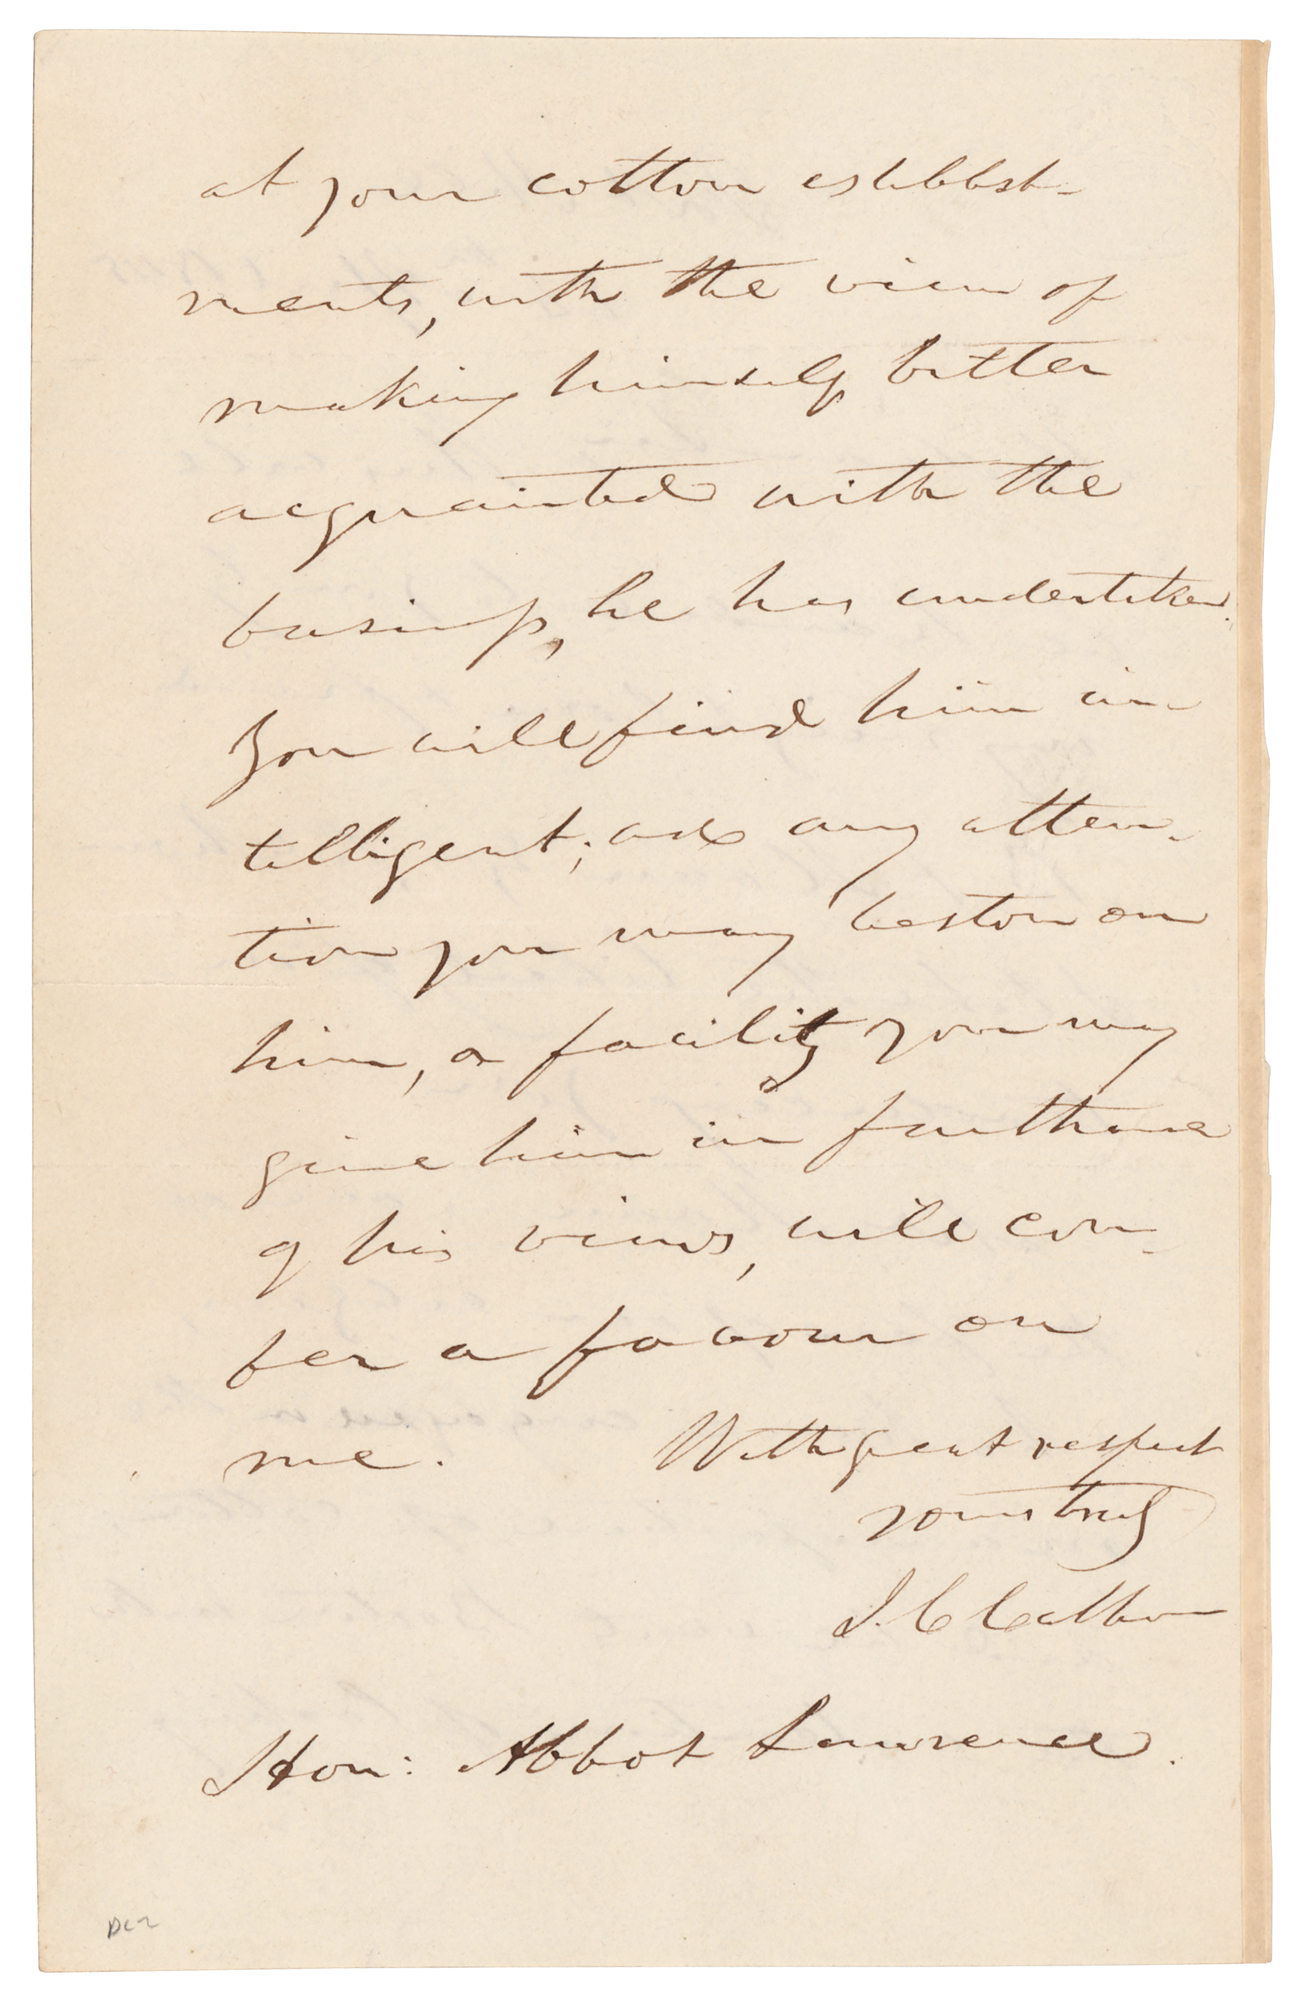 at your cotton establish-
ments, with the view of
making himself better
acquainted with the
business, he has undertaken.
You will find him in-
telligent; and any atten-
tion you may bestow on
him, or facility you may
give him in furtherance
of his views, will con-
fer a favour on
me. With great respect
yours truly
J. C. Calhoun
Hon: Abbot Lawrence.